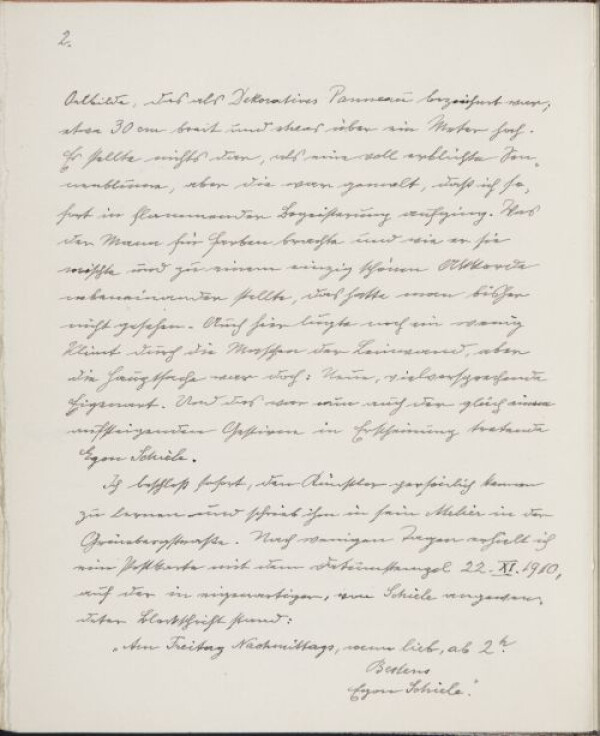 2.
Oelbilde, das als Dekoratives Panneau bezeichnet war,
etwa 30 cm breit und etwas über ein Meter hoch.
Es stellte nichts dar, als eine voll erblühte Son-
nenblume, aber die war gemalt, daß ich so-
fort in flammender Begeisterung aufging. Was
der Mann für Farben brachte und wie er sie
mischte und zu einem einzig schönen Akkorde
nebeneinander stellte, das hatte man bisher
nicht gesehen. Auch hier lugte noch ein wenig
Klimt durch die Maschen der Leinwand, aber
die Hauptsache war doch: Neue, vielversprechende
Eigenart. Und das war nun auch der gleich einem
aufsteigenden Gestirne in Erscheinung tretende
Egon Schiele.
Ich beschloß sofort, den Künstler persönlich kennen
zu lernen und schrieb ihm in sein Atelier in der
Grünbergstraße. Nach wenigen Tagen erhielt ich
eine Postkarte mit dem Datumstempel 22. XI. 1910,
auf der in eigenartiger, von Schiele angewen-
deter Blockschrift stand:
„Am Freitag Nachmittags, wenn lieb, ab 2h.
Bestens
Egon Schiele."